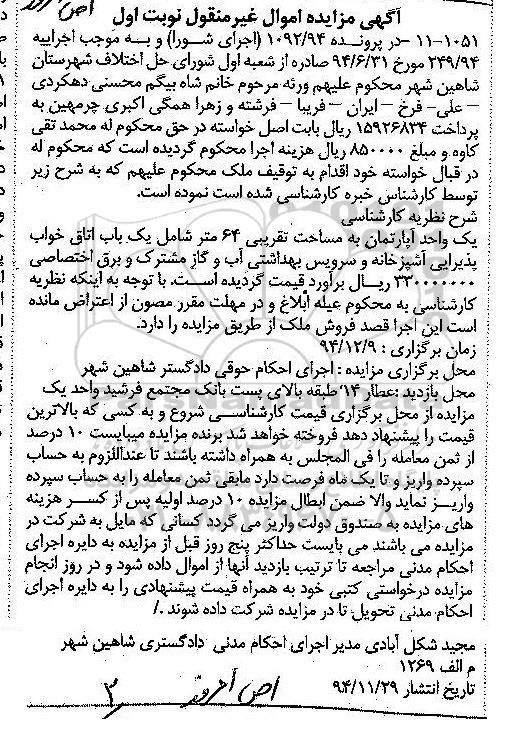 آگهی مزایده اموال غیرمنقول نوبت اول
۱۱-۱۰۵۱- در پرونده ۱۰۹۲/۹۴ (اجرای شورا) و به موجب اجراییه
۲۴۹/۹۴ مورخ ۹۴/۶/۳۱ صادره از شعبه اول شورای حل اختلاف شهرستان
شاهین شهر محکوم علیهم ورثه مرحوم خانم شاه بیگم محسنی دهکردی
– علی- فرخ – ایران – فریبا – فرشته و زهرا همگی اکبری چرمهین به
پرداخت ۱۵۹۲۶۸۳۴ ریال بابت اصل خواسته در حق محکوم له محمد تقی
کاوه و مبلغ ۸۵۰۰۰۰ ریال هزینه اجرا محکوم گردیده است که محکوم له
در قبال خواسته خود اقدام به توقیف ملک محکوم علیهم که به شرح زیر
توسط کارشناس خبره کارشناسی شده است نموده است.
شرح نظریه کارشناسی
یک واحد آپارتمان به مساحت تقریبی ۶۴ متر شامل یک باب اتاق خواب
پذیرایی آشپزخانه و سرویس بهداشتی آب و گاز مشترک و برق اختصاصی
۳۳۰۰۰۰۰۰۰ ریال برآورد قیمت گردیده است. با توجه به اینکه نظریه
کارشناسی به محکوم عیله ابلاغ و در مهلت مقرر مصون از اعتراض مانده
است این اجرا قصد فروش ملک از طریق مزایده را دارد.
زمان برگزاری : ۹۴/۱۲/۹
محل برگزاری مزایده : اجرای احکام حوقی دادگستر شاهین شهر
محل بازدید :عطار ۱۴ طبقه بالای پست بانک مجتمع فرشید واحد یک
مزایده از محل برگزاری قیمت کارشناسی شروع و به کسی که بالاترین
قیمت را پیشنهاد دهد فروخته خواهد شد برنده مزایده میبایست ۱۰ درصد
از ثمن معامله را فی المجلس به همراه داشته باشند تا عنداللزوم به حساب
سپرده واریز و تا یک ماه فرصت دارد مابقی ثمن معامله را به حساب سپرده
واریز نماید والا ضمن ابطال مزایده ۱۰ درصد اولیه پس از کسر هزینه
های مزایده به صندوق دولت واریز می گردد کسانی که مایل به شرکت در
مزایده می باشند می بایست حداکثر پنج روز قبل از مزایده به دایره اجرای
احکام مدنی مراجعه تا ترتیب بازدید آنها از اموال داده شود و در روز انجام
مزایده درخواستی کتبی خود به همراه قیمت پیشنهادی را به دایره اجرای
احکام مدنی تحویل تا در مزایده شرکت داده شوند ./
مجید شکل آبادی مدیر اجرای احکام مدنی دادگستری شاهین شهر
م الف ۱۲۶۹
تاریخ انتشار ۹۴/۱۱/۲۹
۳